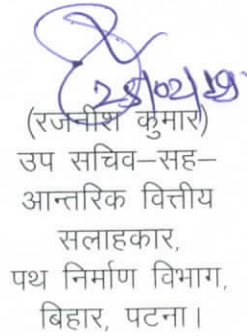 28/02/19
(रजनीश कुमार)
उप सचिव–सह–
आन्तरिक वित्तीय
सलाहकार,
पथ निर्माण विभाग,
बिहार, पटना।